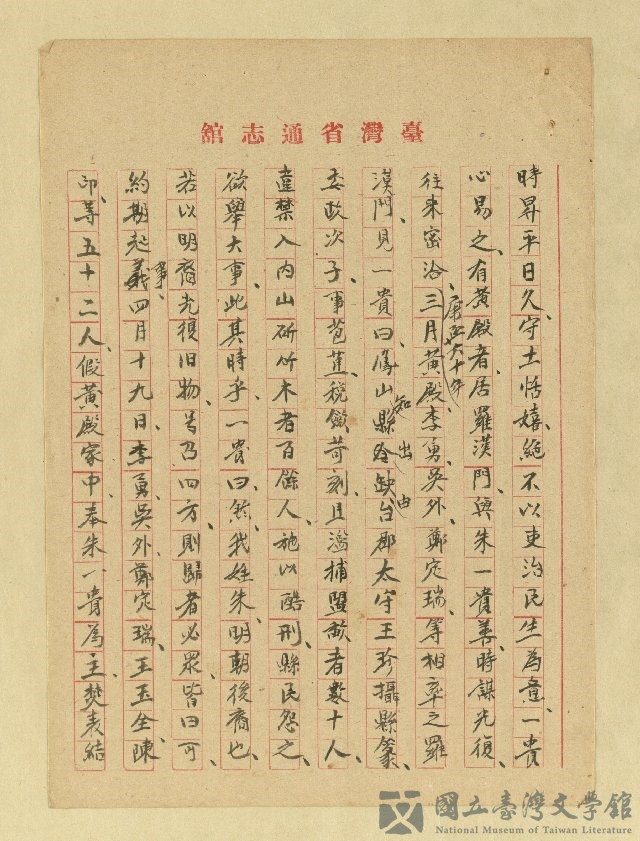 臺灣省通志館
時昇平日久、守土恬嬉、絕不以吏治民生為意、一貴
心易之、有黃殿者、居羅漢門、與朱一貴善、時謀光復、
往來密洽、康熙六十年三月、黃殿、李勇、吳外、鄭定瑞、等相率之羅
漢門、見一貴曰、鳳山縣知縣令出缺、由台郡太守王珍攝縣篆、
委政次子、事苞苴、稅斂苛刻、且濫捕盟歃者數十人、
違禁入內山斫竹木者百餘人、施以酷刑、縣民怨之、
欲舉大事、此其時乎、一貴曰、然、我姓朱、明朝後裔也、
若以明裔光復旧物、号召四方、則歸者必眾、皆曰可、
約期起義事、四月十九日、李勇、吳外、鄭定瑞、王玉全、陳
印、等五十二人、假黃殿家中、奉朱一貴為主、焚表結
國立臺灣文學館
National Museum of Taiwan Literature